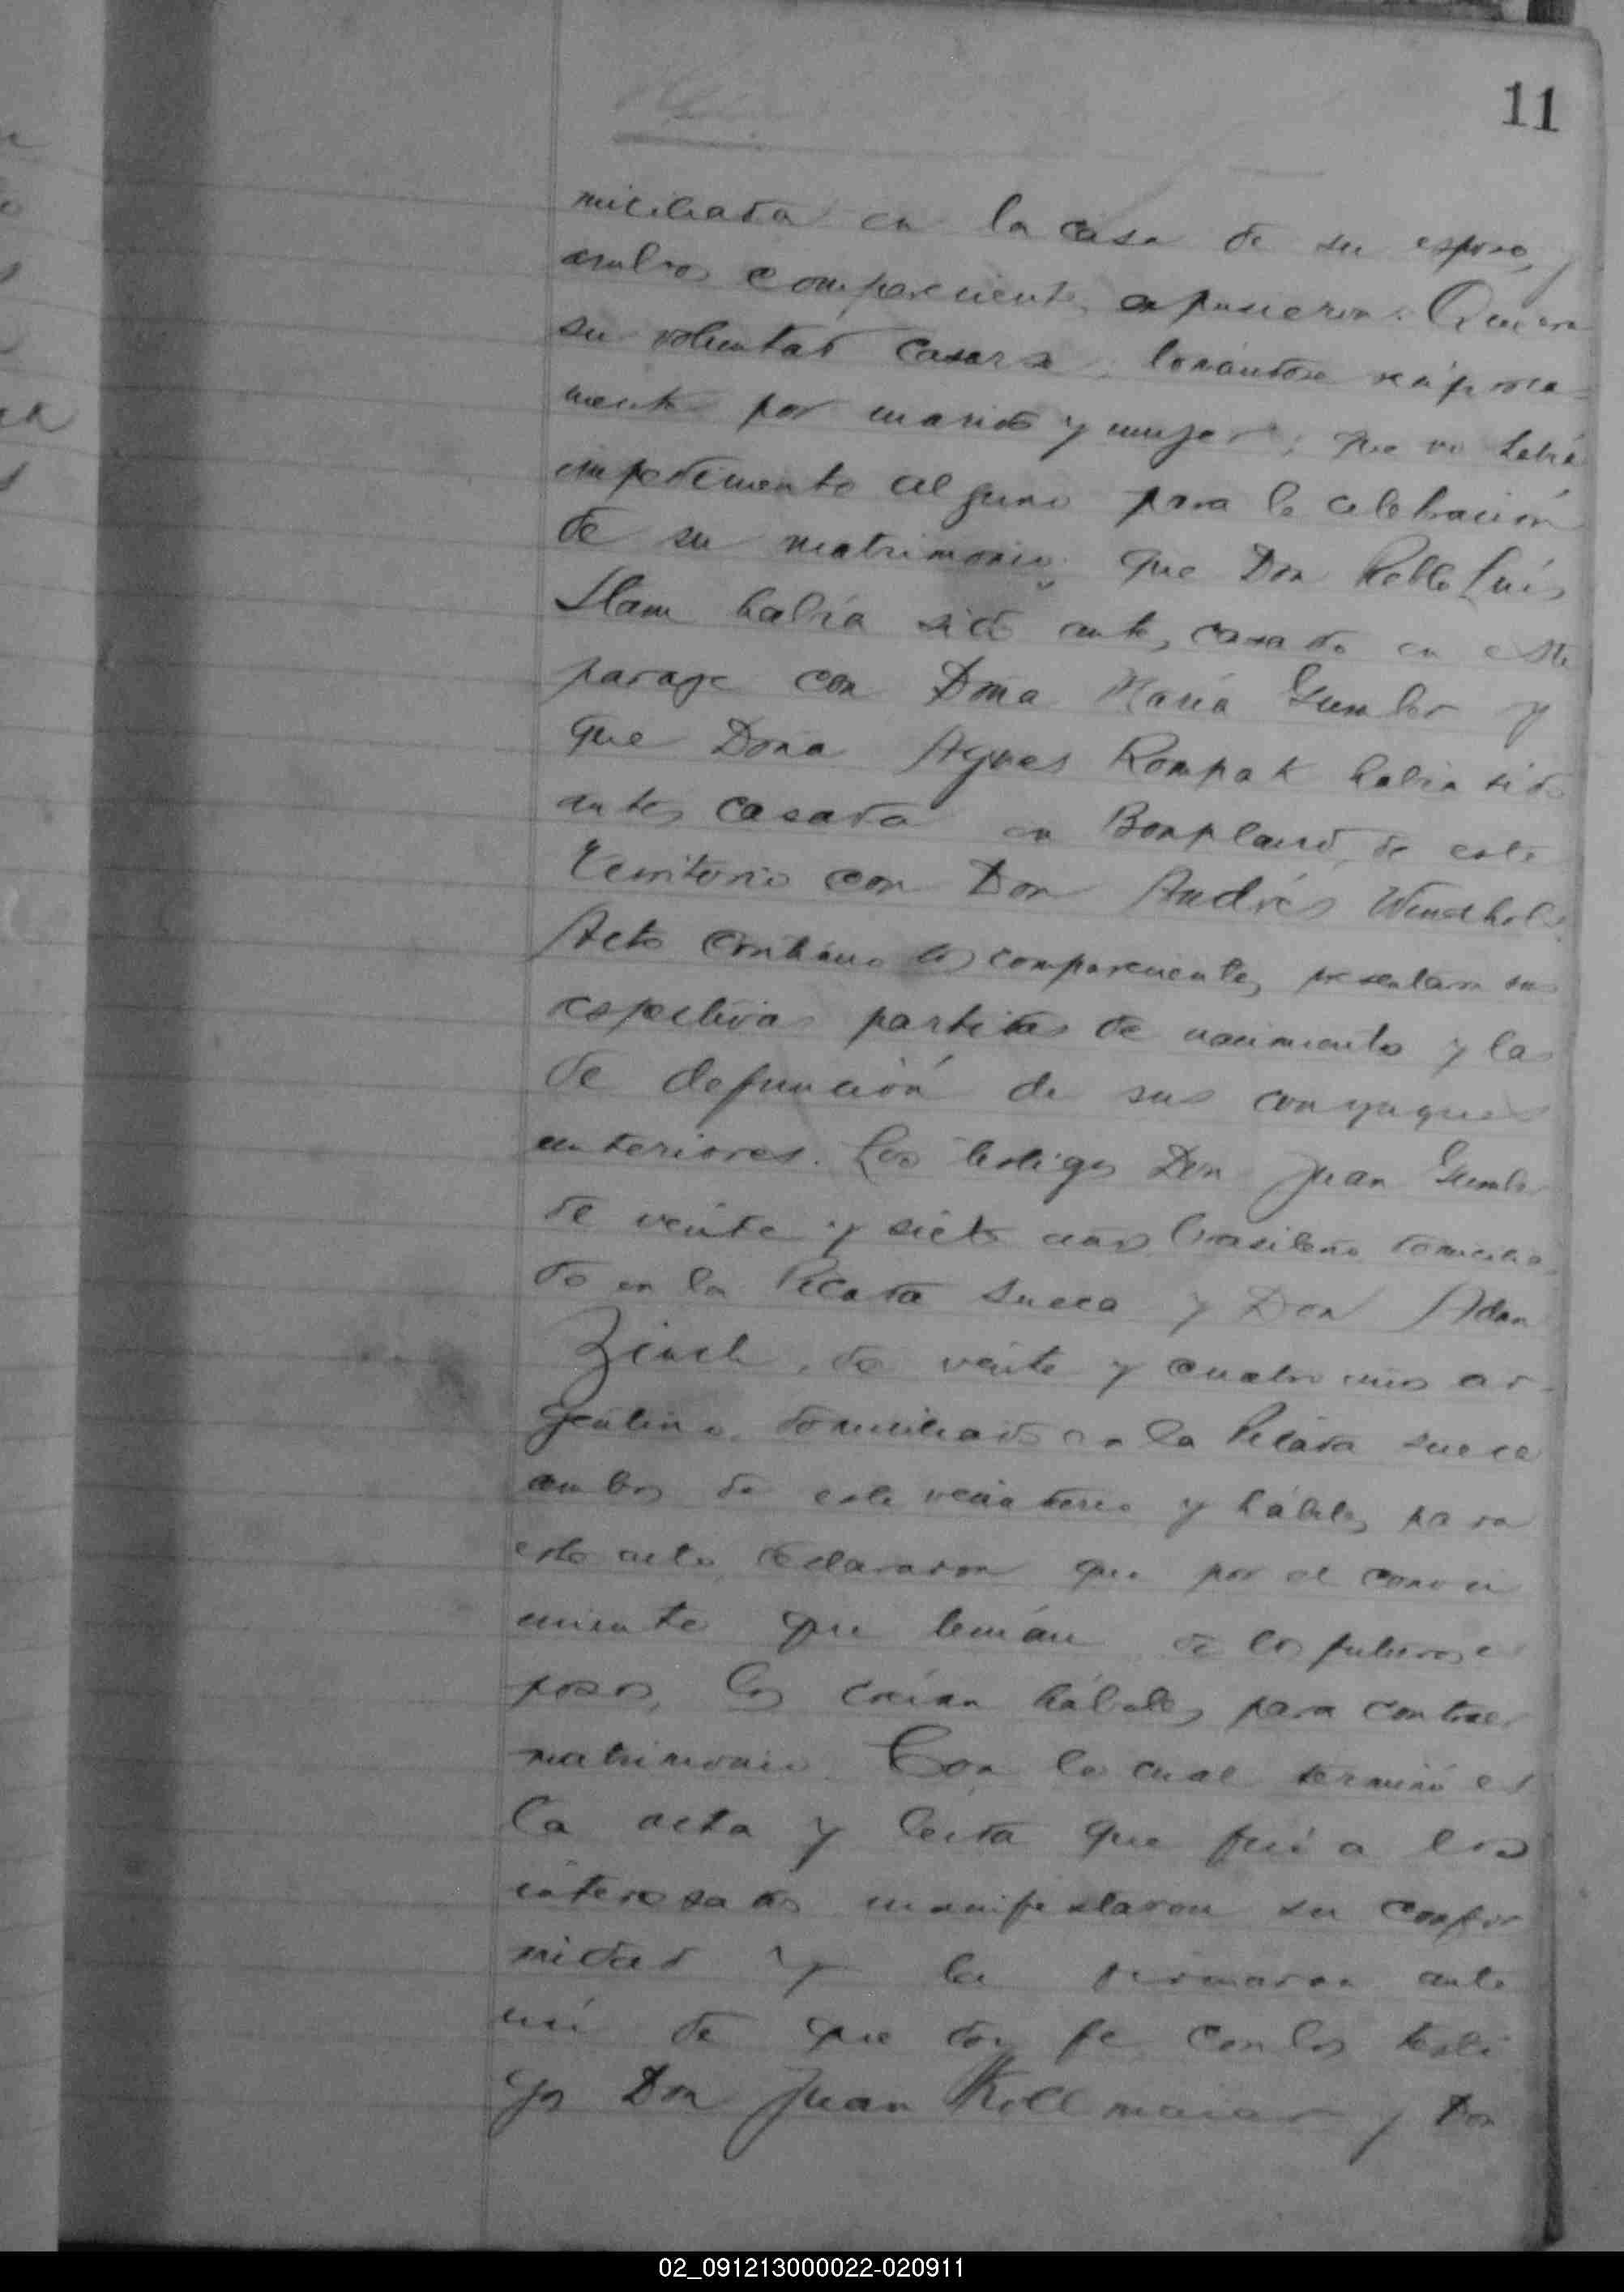 11
miciliada en la casa de su esposo, y
ambos comparecientes expusieron: Que era
su voluntad casarse, tomándose recíproca-
mente por marido y mujer; que no había
impedimento alguno para la celebración
de su matrimonio; que Don Luis
había sido antes casado en este
paraje con Doña María Gumler y
que Doña Agnes Rompak había sido
antes casada en Bonpland, de este
Territorio con Don Andrés
Acto continuo los comparecientes presentaron sus
respectivas partidas de nacimiento y las
de defunción de sus conyugues
anteriores. Los testigos Don Juan Gumler
de veinte y siete años, brasileño domicilia-
do en la Picada Sueca y Don Adan
Zinch, de veinte y cuatro años ar-
gentino, domiciliado en la Picada Sueca
ambos de este vecindario y hábiles para
este acto, declararon que por el conoci
miento que tenían de los futuros es
posos, los creían hábiles para contraer
matrimonio. Con lo cual terminó es
ta acta y leida que fué a los
interesados manifestaron su confor
midad y la firmaron ante
mí de que doy fe con los testi
gos Don Juan Kollmaier y Don
02_091213000022-020911